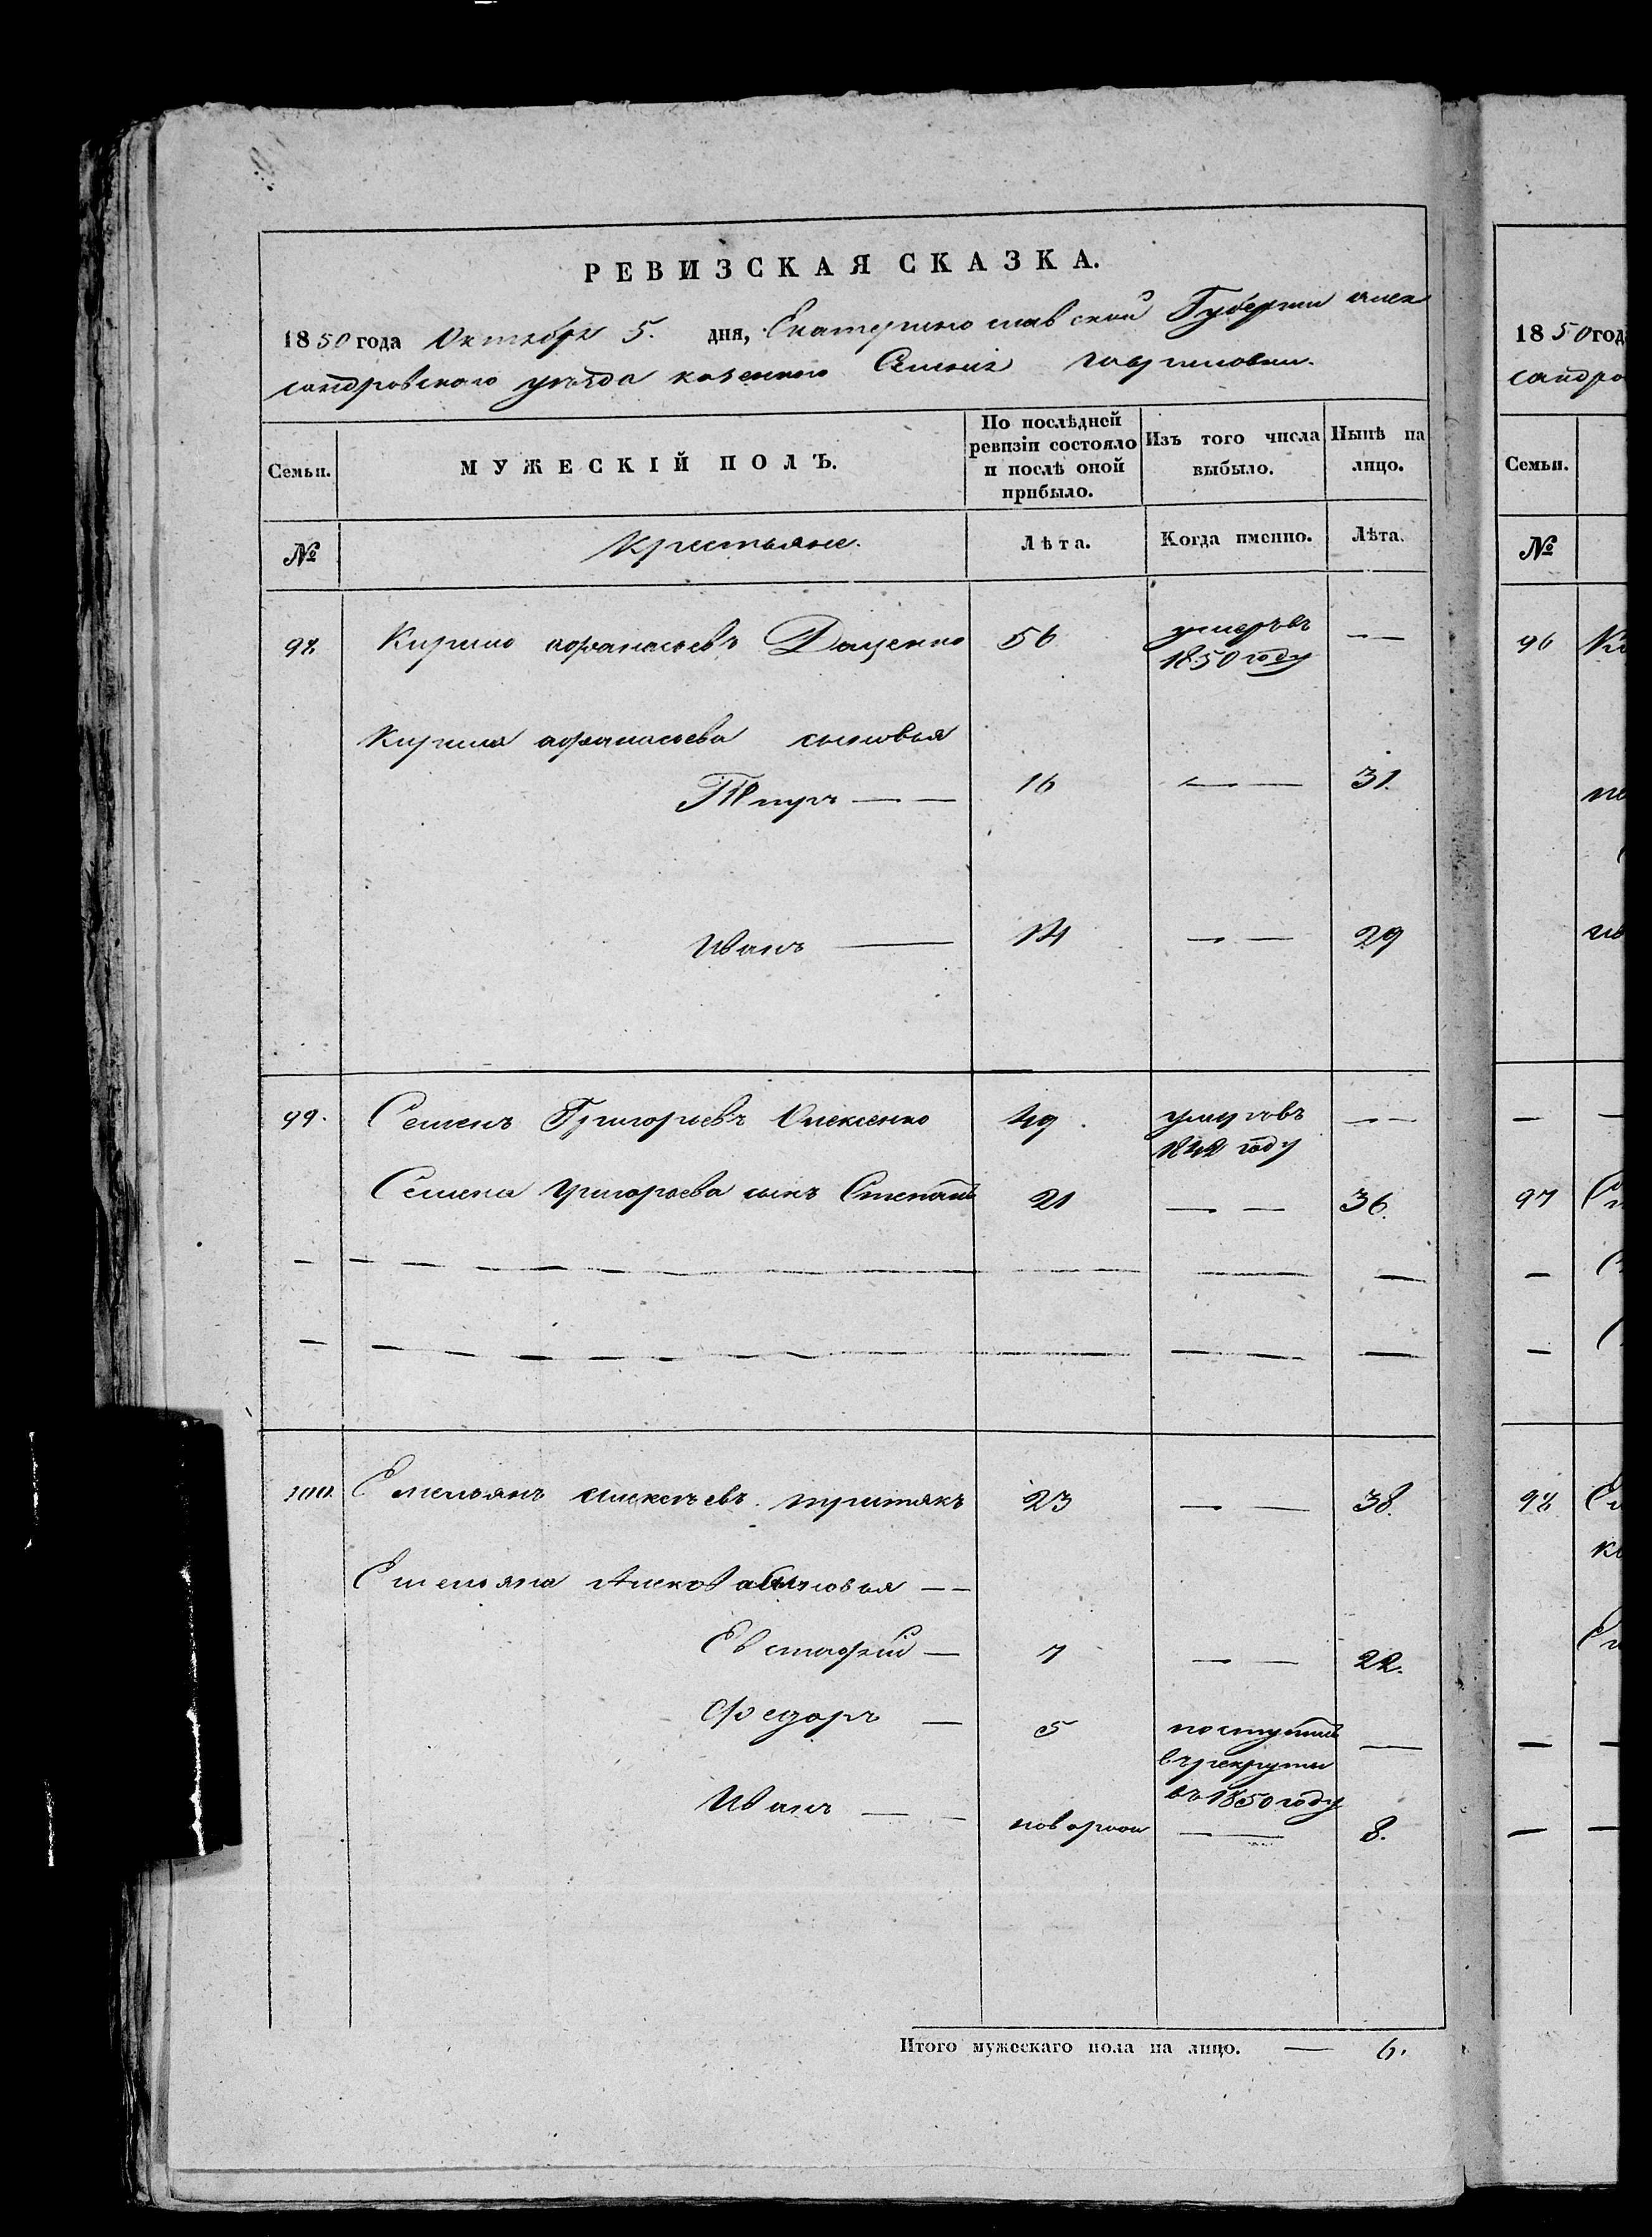 РЕВИЗСКАЯ СКАЗКА.
1850 года Октября 5. дня, Екатеринославской Губернии алек
сандровского уезда казенного Селения Гавриловки.
Семьи. МУЖЕСКІЙ ПОЛЪ. По послѣдней ревизіи состояло и послѣ оной прибыло. Изъ того числа выбыло. Нынѣ на лицо.
№ Крестьяне. Лѣта. Когда именно. Лѣта.
98 Кирило афанасьевъ Даценко 56 умеръ въ — —
1850 году
Кирила афанасьева сыновья
16 — — 31.
Иванъ — 14 — — 29
99. Семенъ Григорьевъ Олексенко 49. — —
1842 году
Семена Григорьева сынъ Степанъ 21 — — 36.
100. Емельянъ алексѣевъ 23 — — 38.
Емельяна сыновья — —
Евстафій — 7 — — 22.
Федоръ — 5 поступилъ —
въ рекруты
въ 1850 году
Иванъ — — новорож — 8.
Итого мужескаго пола на лицо. — 6.
1850 год
сандро
Семьи.
№
96
97
98